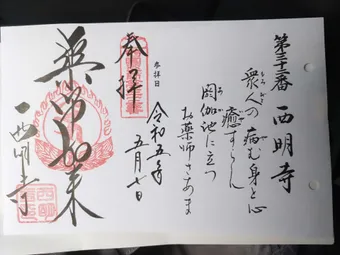 第三十三番 西明寺
衆人の病む身と心
癒すらん
閼伽池に立つ
お薬師さあま
参拝日
令和五年
五月七日
奉拝
薬師如来
西明寺